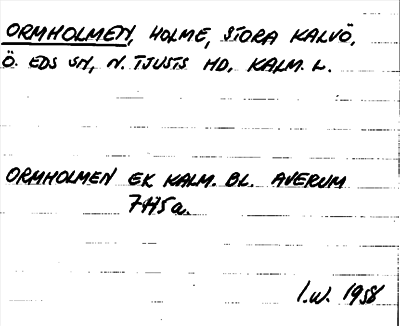 ORMHOLMEN, HOLME, STORA KALVÖ,
Ö. EDS SN, N. TJUSTS HD, KALM. L.
ORMHOLMEN EK KALM. BL. AVERUM
I.W. 1958